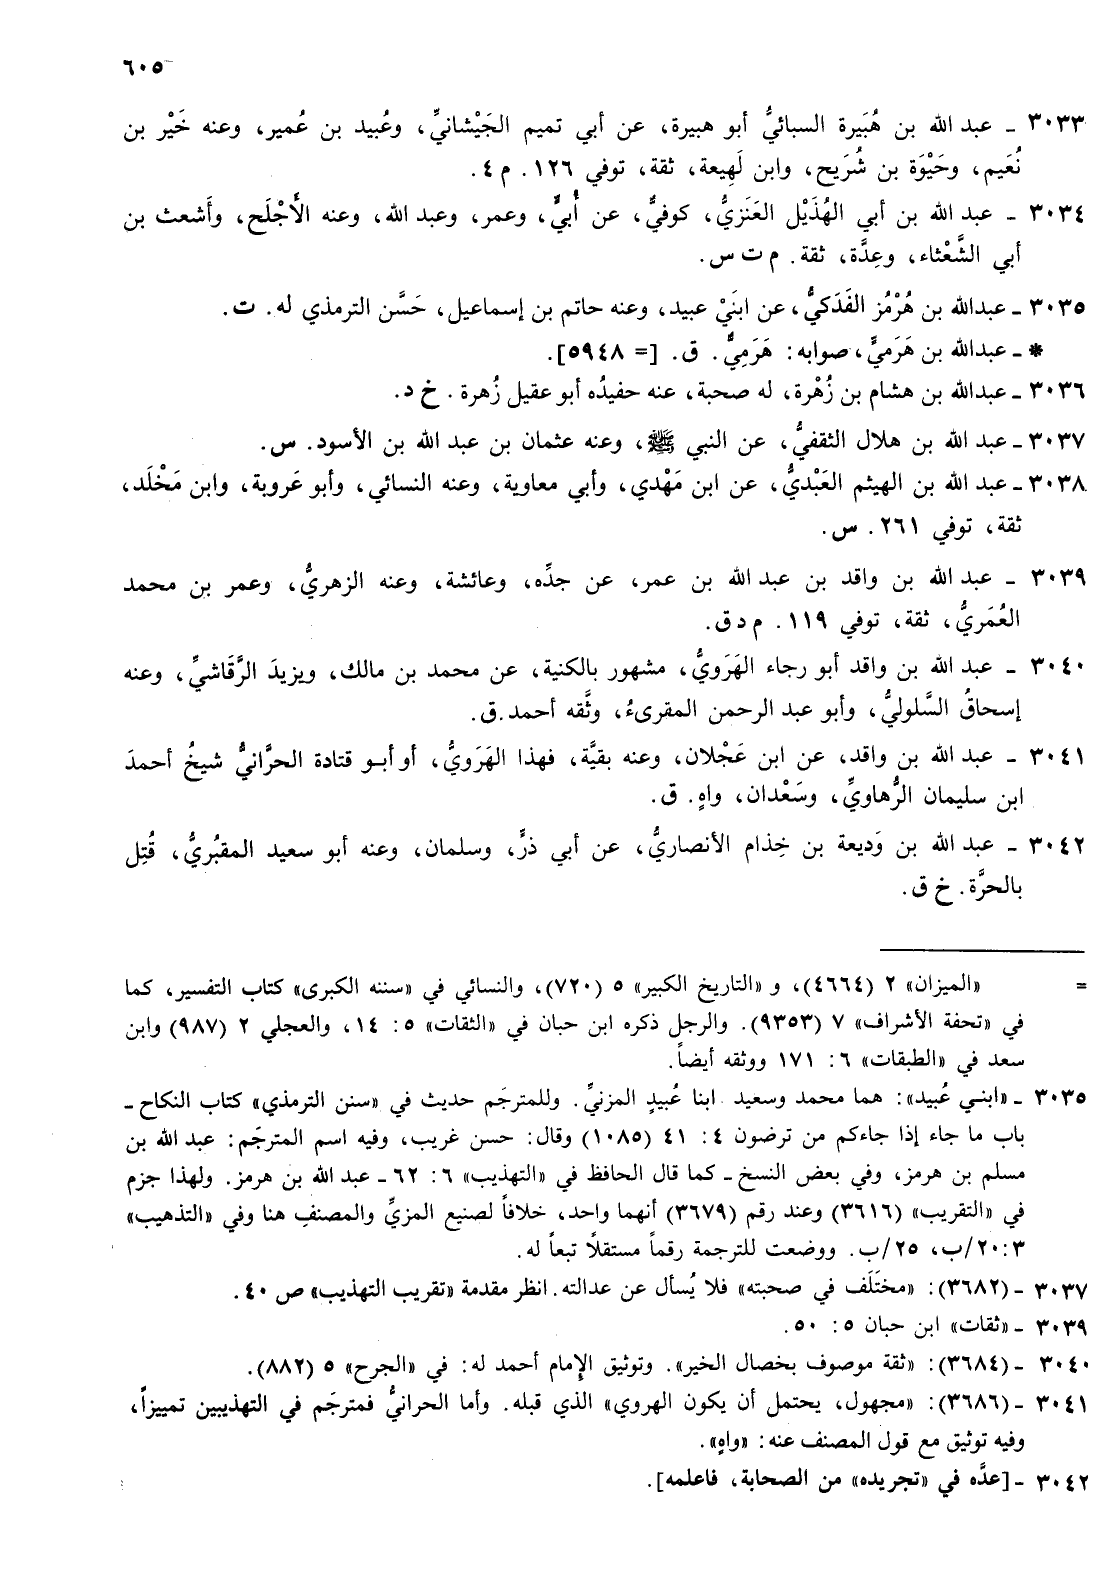 ٦٠٥
٣٠٣٣ - عبد الله بن هُبَيرة السبائيُّ أبو هبيرة، عن أبي تميم الجَيْشانيِّ، وعُبيد بن عُمير، وعنه خَيْر بن
نُعَيم، وحَيْوَة بن شُرَيح، وابن لَهِيعة، ثقة، توفي ١٢٦. م ٤.
٣٠٣٤ - عبد الله بن أبي الهُذَيْل العَنَزيُّ، كوفيٌّ، عن أُبيٍّ، وعمر، وعبد الله، وعنه الأَجْلَح، وأَشعث بن
أبي الشَّعْثاء، وعِدَّة، ثقة. م ت س.
٣٠٣٥ - عبدالله بن هُرْمُز الفَدَكيُّ، عن ابنَيْ عبيد، وعنه حاتم بن إسماعيل، حَسَّن الترمذي له. ت.
* - عبدالله بن هَرَميٍّ، صوابه: هَرَمِيٌّ. ق. [= ٥٩٤٨].
٣٠٣٦ - عبدالله بن هشام بن زُهْرة، له صحبة، عنه حفيدُه أبو عقيل زُهرة. خ د.
٣٠٣٧ - عبد الله بن هلال الثقفيُّ، عن النبي ﷺ، وعنه عثمان بن عبد الله بن الأسود. س.
٣٠٣٨ - عبد الله بن الهيثم العَبْديُّ، عن ابن مَهْدي، وأبي معاوية، وعنه النسائي، وأبو عَروبة، وابن مَخْلَد،
ثقة، توفي ٢٦١. س.
٣٠٣٩ - عبد الله بن واقد بن عبد الله بن عمر، عن جدِّه، وعائشة، وعنه الزهريُّ، وعمر بن محمد
العُمَريُّ، ثقة، توفي ١١٩. م د ق.
٣٠٤٠ - عبد الله بن واقد أبو رجاء الهَرَويُّ، مشهور بالكنية، عن محمد بن مالك، ويزيدَ الرَّقَاشيِّ، وعنه
إسحاقُ السَّلوليُّ، وأبو عبد الرحمن المقرىءُ، وثَّقه أحمد. ق.
٣٠٤١ - عبد الله بن واقد، عن ابن عَجْلان، وعنه بقيَّة، فهذا الهَرَويُّ، أو أبـو قتادة الحرَّانيُّ شيخُ أحمدَ
ابن سليمان الرُّهاويِّ، وسَعْدان، واهٍ. ق.
٣٠٤٢ - عبد الله بن وَديعة بن خِذام الأنصاريُّ، عن أبي ذرٍّ، وسلمان، وعنه أبو سعيد المقبُريُّ، قُتِل
بالحرَّة. خ ق.
= «الميزان» ٢ (٤٦٦٤)، و «التاريخ الكبير» ٥ (٧٢٠)، والنسائي في «سننه الكبرى» كتاب التفسير، كما
في «تحفة الأشراف» ٧ (٩٣٥٣). والرجل ذكره ابن حبان في «الثقات» ٥: ١٤، والعجلي ٢ (٩٨٧) وابن
سعد في «الطبقات» ٦: ١٧١ ووثقه أيضاً.
٣٠٣٥ - «ابنـي عُبيد»: هما محمد وسعيد ابنا عُبيدٍ المزنيِّ. وللمترجَم حديث في «سنن الترمذي» كتاب النكاح -
باب ما جاء إذا جاءكم من ترضون ٤: ٤١ (١٠٨٥) وقال: حسن غريب، وفيه اسم المترجَم: عبد الله بن
مسلم بن هرمز، وفي بعض النسخ - كما قال الحافظ في «التهذيب» ٦: ٦٢ - عبد الله بن هرمز. ولهذا جزم
في «التقريب» (٣٦١٦) وعند رقم (٣٦٧٩) أنهما واحد، خلافاً لصنيع المزيِّ والمصنفِ هنا وفي «التذهيب»
٣: ٢٠/ب، ٢٥/ب. ووضعت للترجمة رقماً مستقلاً تبعاً له.
٣٠٣٧ - (٣٦٨٢): «مختَلَف في صحبته» فلا يُسأل عن عدالته. انظر مقدمة «تقريب التهذيب» ص ٤٠.
٣٠٣٩ - «ثقات» ابن حبان ٥: ٥٠.
٣٠٤٠ - (٣٦٨٤): «ثقة موصوف بخصال الخير». وتوثيق الإمام أحمد له: في «الجرح» ٥ (٨٨٢).
٣٠٤١ - (٣٦٨٦): «مجهول، يحتمل أن يكون الهروي» الذي قبله. وأما الحرانيُّ فمترجَم في التهذيبين تمييزاً،
وفيه توثيق مع قول المصنف عنه: «واهٍ».
٣٠٤٢ - [عدَّه في «تجريده» من الصحابة، فاعلمه].